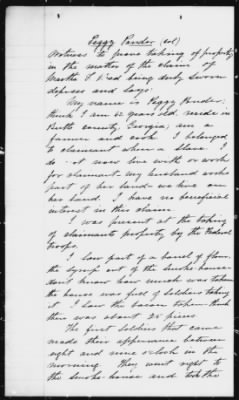 Peggy Ponder (col)
Witness to prove taking of property
in the matter of the claim of
Martha T. being duly sworn
deposes and says:
My name is Peggy Ponder:
think I am 62 years old, reside in
Butts County, Georgia; am a
farmer and cook. I belonged
to claimant when a slave. I
do not now live with or work
for claimant. my husband works
part of her land - we live on
her land. I have no beneficial
interest in this claim.
I was present at the taking
of claimants property by the Federal
troops.
I saw part of a barrel of flour,
the syrup out of the smoke house
dont know how much was taken
the house was full of soldiers taking
it I saw the bacon taken - think
there was about 25 pieces
The first soldiers that came
made their appearance between
eight and nine oclock in the
morning. They went right to
the smoke-house and took the